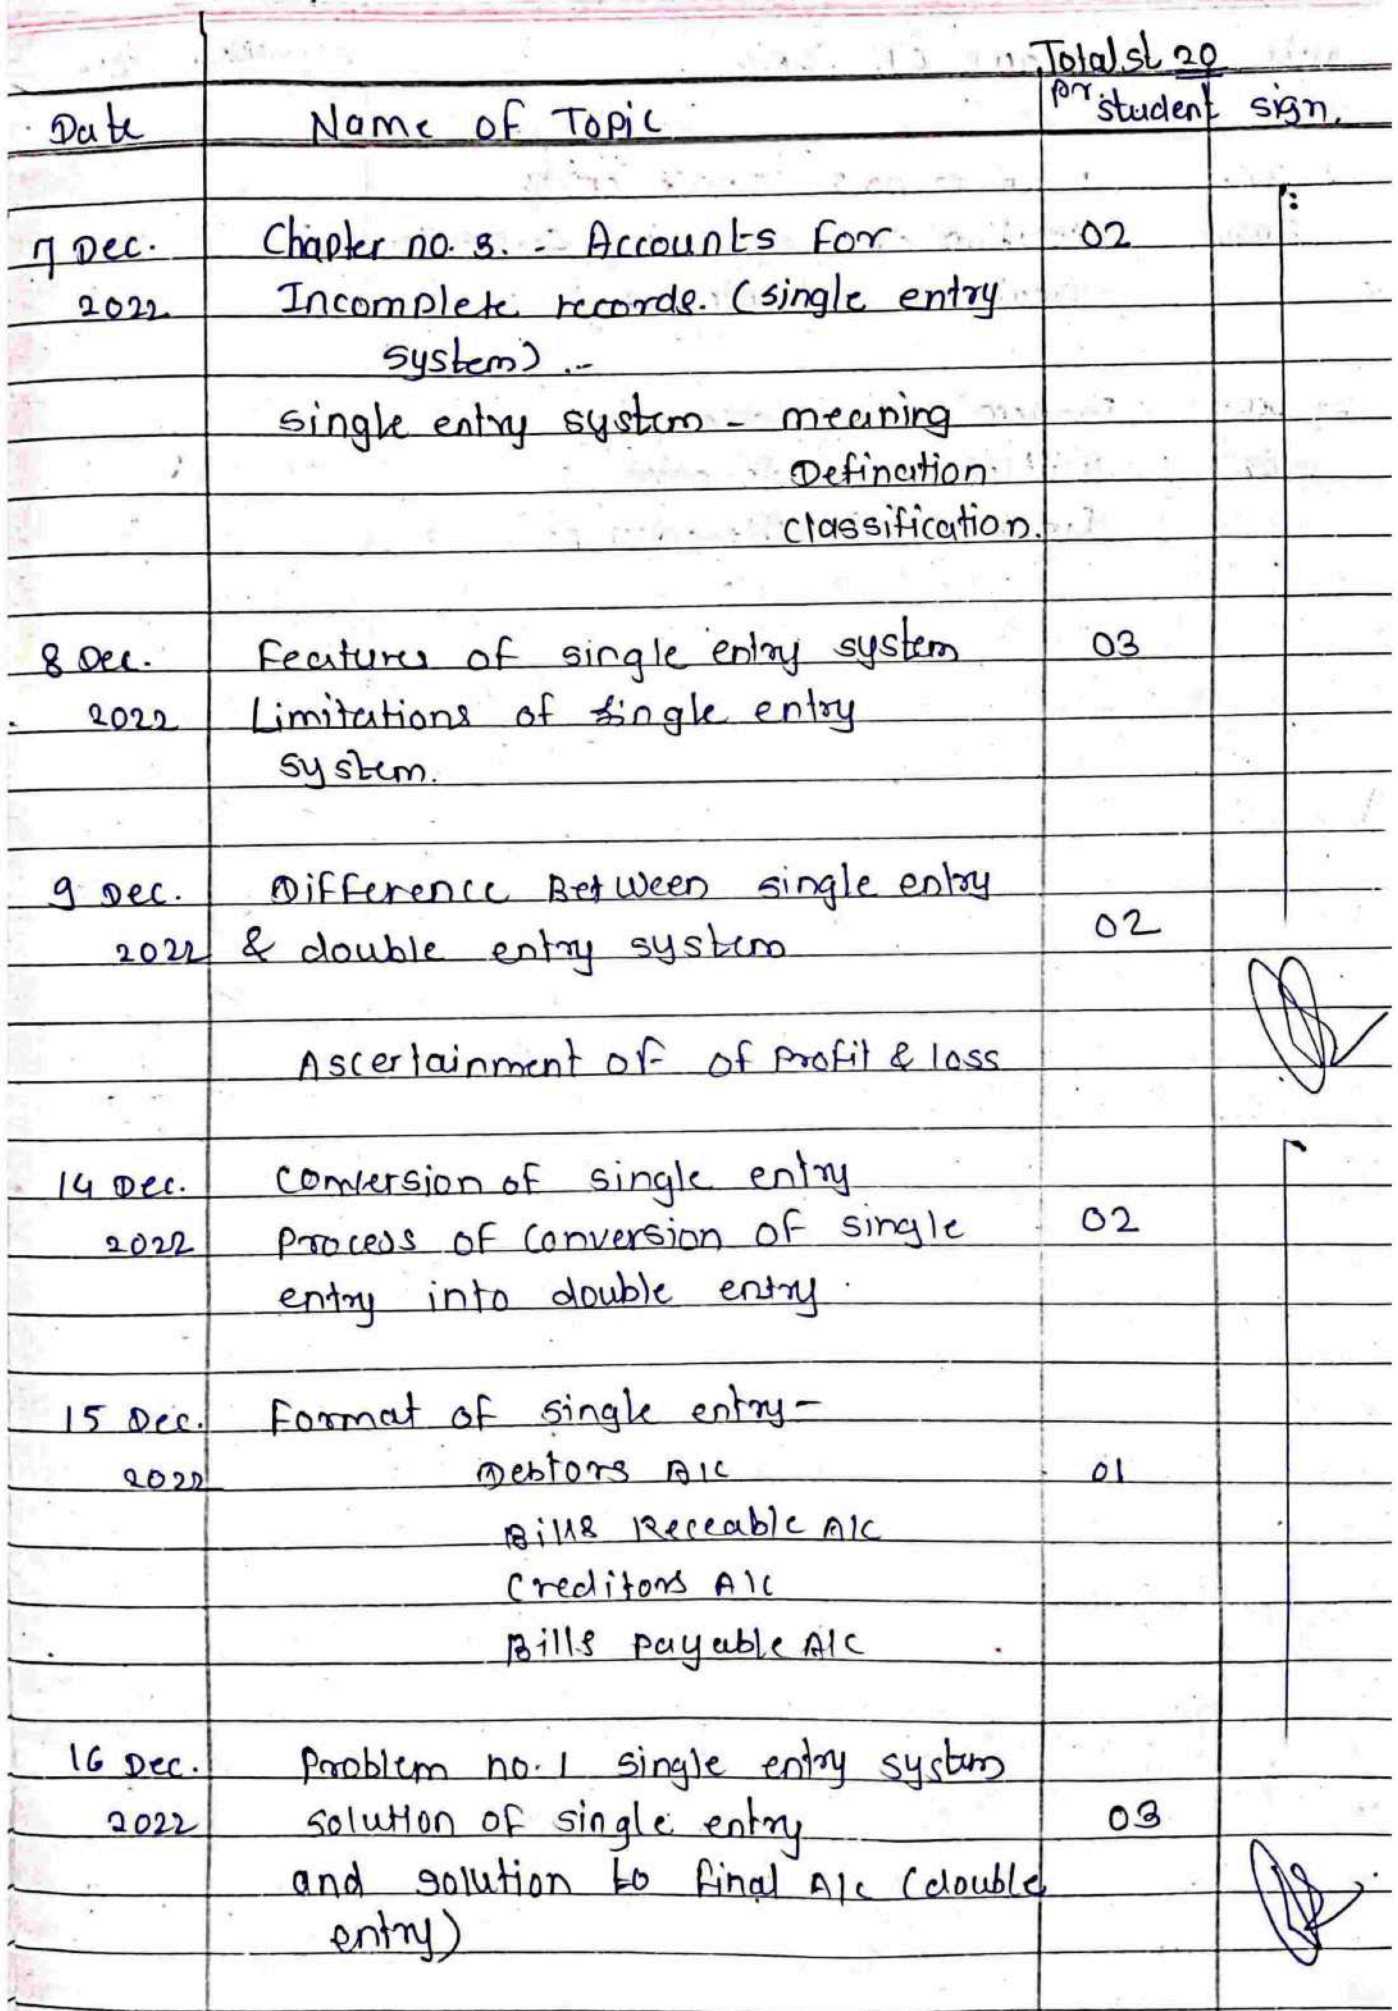 Total st 20
Date Name of Topic pr. student sign.
7 Dec. Chapter no. 3. :- Accounts For 02
2022 Incomplete records. (single entry
system) .-
single entry system - meaning
Defination
classification.
8 Dec. Features of single entry system 03
2022 Limitations of single entry
system.
9 Dec. Difference Between single entry
2022 & double entry system 02
Ascertainment of of profit & loss
14 Dec. Conversion of single entry
2022 Process of Conversion of single 02
entry into double entry.
15 Dec. Format of single entry -
2022 Debtors A/c 01
Bills Receable A/c
Creditors A/c
Bills payable A/c
16 Dec. Problem no. 1 single entry system
2022 solution of single entry 03
and solution to final A/c (double
entry)